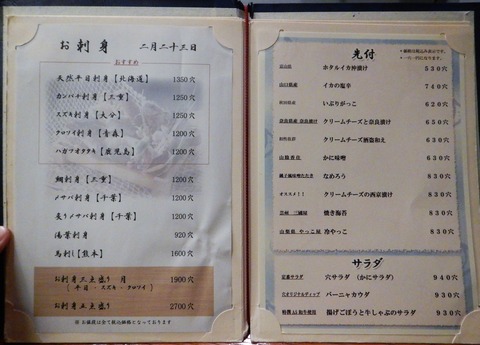 お刺身 二月二十三日
おすすめ
天然平目刺身【北海道】 1350穴
カンパチ刺身【三重】 1200穴
スズキ刺身【大分】 1200穴
クロソイ刺身【青森】 1200穴
ハガツオタタキ【鹿児島】 1200穴
鯛刺身【三重】 1200穴
〆サバ刺身【千葉】 1200穴
炙り〆サバ刺身【千葉】 1200穴
湯葉刺身 920穴
馬刺し【熊本】 1600穴
お刺身三点盛り 1900穴
(平目・スズキ・クロソイ)
お刺身五点盛り 2700穴
先付
富山県 ホタルイカ沖漬け 530穴
山口県産 イカの塩辛 740穴
秋田県産 いぶりがっこ 620穴
奈良県産 奈良漬け クリームチーズと奈良漬け 650穴
クリームチーズ酒盗和え 630穴
かに味噌 630穴
なめろう 830穴
オススメ!! クリームチーズの西京漬け 830穴
焼き海苔 830穴
冷やっこ 830穴
サラダ
定番サラダ 穴サラダ (かにサラダ) 940穴
バーニャカウダ 930穴
揚げごぼうと牛しゃぶのサラダ 930穴